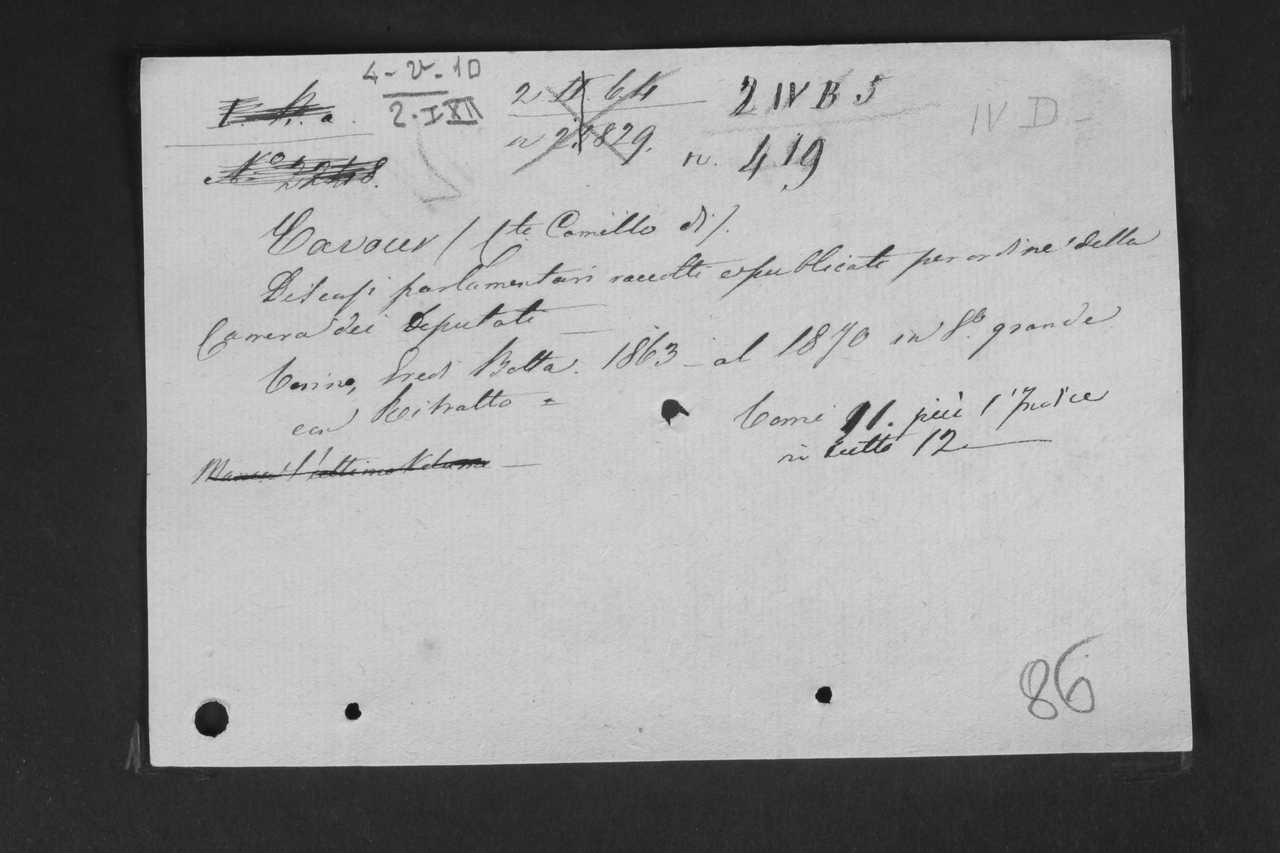 4-V-10
2.IXII
2 II. 64
n 2.829.
2 IV B 5
n. 419
IV D -
No. 2248.
Cavour / Cte. Camillo di /.
Discorsi parlamentari raccolti e pubblicati per ordine della
Camera dei Deputati —
Torino, Eredi Botta. 1863 - al 1870 in 8º. grande
con Ritratto =
Tomi 11. più l'Indice
in tutto 12 —
Manca l'ultimo Volume —
86